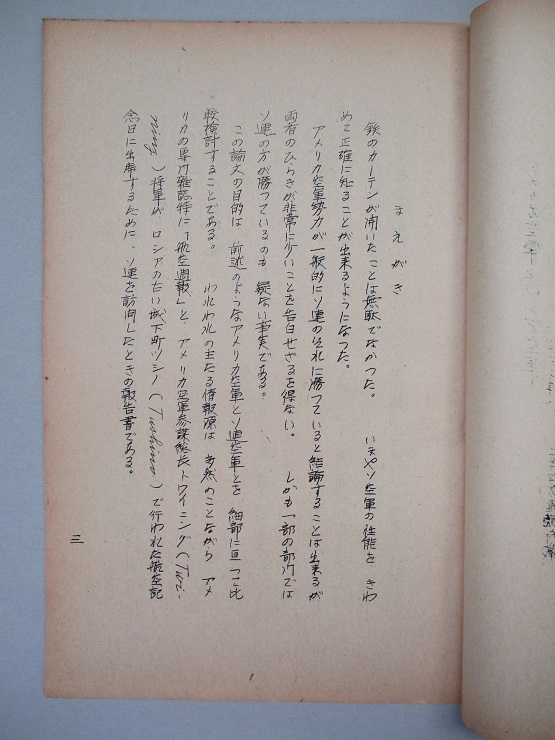 まえがき
鉄のカーテンが開いたことは無駄でなかった。 いまやソ空軍の性能を きわ
めて正確に知ることが出来るようになつた。
アメリカ空軍勢力が一般的にソ連のそれに勝つていると結論することは出来るが
両者のひらきが非常に少いことを告白せざるを得ない。 しかも一部の部門では
ソ連の方が勝つているのも 疑ない事実である。
この論文の目的は 前述のようなアメリカ空軍とソ連空軍とを 細部に亘つて比
較検討することである。 われわれの主たる情報源は 当然のことながら アメ
リカの専門雑誌特に「航空週報」と、アメリカ空軍参謀総長トワイニング(Twi-
ning)将軍が、ロシアの古い城下町ツシノ(Tushino)で行われた航空記
念日に出席するために、ソ連を訪問したときの報告書である。
三